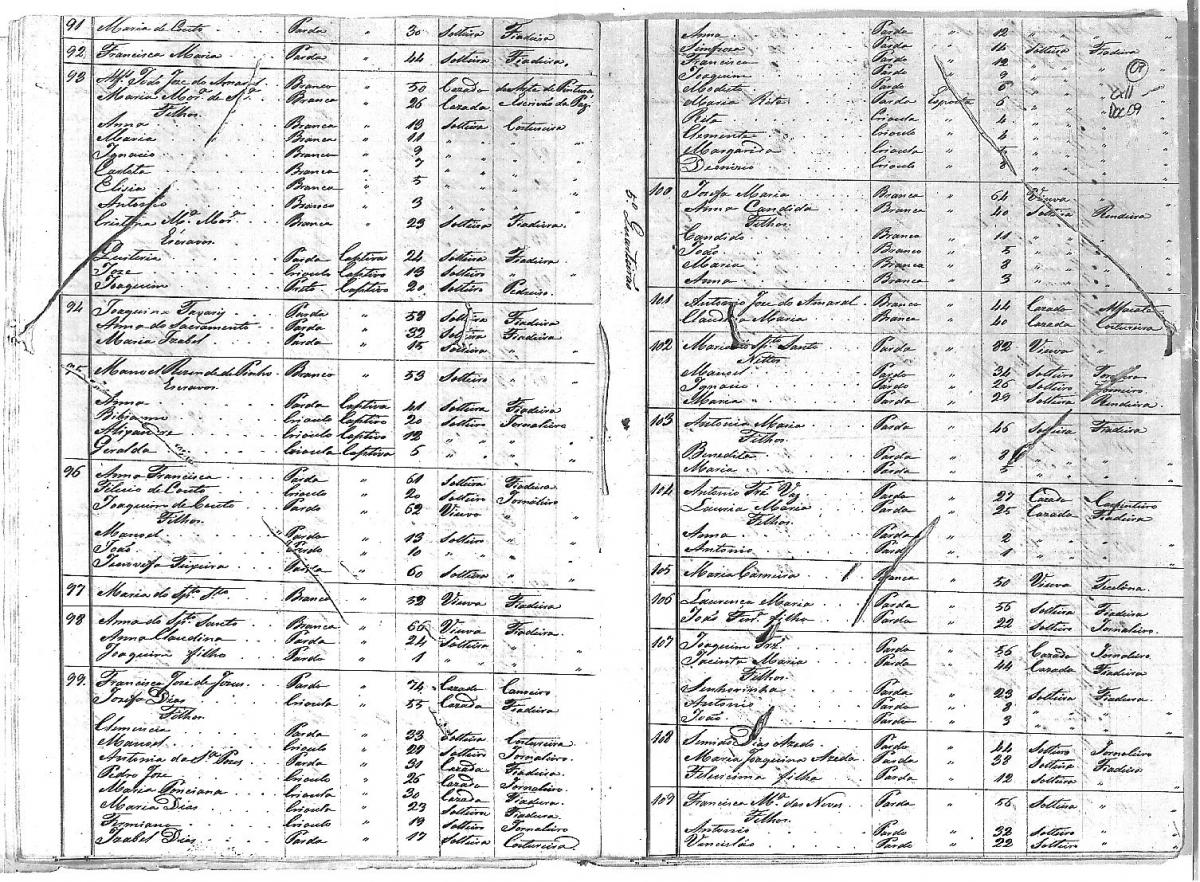 91 Maria do Couto Parda " 30 Solteira Fiadeira
92 Francisca Maria Parda " 44 Solteira Fiadeira
93 Branco " 50 Cazado de Pintura
Maria Mor.ª Branca " 26 Cazada Escrivão de Paz
Filhos
Anna Branca " 13 Solteira Costureira
Maria Branca " 11 " "
Ignacio Branco " 9 " "
Branca " 7 " "
Elisia Branca " 5 " "
Antonio Branco " 3 " "
Cristina M.ª Mor.ª Branca " 23 Solteira Fiadeira
Escravos
Quiteria Parda Captiva 24 Solteira Fiadeira
Joze Crioulo Captivo 13 Solteiro "
Joaquim Preto Captivo 20 Solteiro Pedreiro
94 Joaquina Parda " 52 Solteira Fiadeira
Anna do Sacramento Parda " 32 Solteira Fiadeira
Maria Izabel Parda " 15 Solteira "
Manoel Rezende de Branco " 53 Solteiro "
Escravos
Anna Parda Captiva 41 Solteira Fiadeira
Crioulo Captivo 20 Solteiro Jornaleiro
Crioulo Captivo 12 " "
Geralda Crioula Captiva 5 " "
96 Anna Francisca Parda " 61 Solteira Fiadeira
do Couto Crioulo " 20 Solteiro Jornaleiro
Joaquim do Couto Pardo " 62 Viuvo "
Filhos
Manoel Pardo " 13 Solteiro "
João Pardo " 10 " "
Teixeira Parda " 60 Solteira "
97 Maria do Sp.to S.to Branca " 52 Viuva Fiadeira
98 Anna do Sp.to Santo Branca " 66 Viuva Fiadeira
Anna Claudina Parda " 24 Solteira "
Joaquim filho Pardo " 1 " "
99 Francisco Joze de Pardo " 74 Cazado Carreiro
Josefa Dias Crioula " 55 Cazada Fiadeira
Filhos
Clemencia Parda " 33 Solteira Costureira
Manoel Crioulo " 22 Solteiro Jornaleiro
Antonia Parda " 30 Cazada Fiadeira
Pedro Joze Crioulo " 26 Cazado Jornaleiro
Maria Ponciana Crioula " 30 Cazada Fiadeira
Maria Dias Crioula " 23 Solteira Fiadeira
Firmiano Crioulo " 19 Solteiro Jornaleiro
Izabel Dias Parda " 17 Solteira Costureira
5.º Quarteirão
Anna Parda " 12 " "
Simproza Parda " 14 Solteira Fiadeira
Francisca Parda " 12 " "
Joaquim Pardo " 9 " "
Modesto Pardo " 6 " "
Maria Rita Parda Exposta 5 " "
Rita Crioula " 4 " "
Clemente Crioulo " 4 " "
Margarida Crioula
Crioulo
07
CxII
Doc 09
100 Josefa Maria Branca " 64 Viuva "
Anna Candida Branca " 40 Solteira Rendeira
Filhos
Candido Branco " 11 " "
João Branco " 5 " "
Maria Branca " 8 " "
Anna Branca " 3 " "
101 Antonio Joze do Amaral Branco " 44 Cazado Alfaiate
Maria Branca " 40 Cazada Costureira
102 Maria do Sp.to Santo Parda " 82 Viuva "
Nettos
Manoel Pardo " 34 Solteiro
Ignacio Pardo " 26 Solteiro
Maria Parda " 29 Solteira Rendeira
103 Antonia Maria Parda " 46 Solteira Fiadeira
Filhos
Benedita Parda " 8 " "
Maria Parda " 5 " "
104 Antonio Vaz Pardo " 27 Cazado Carpinteiro
Maria Parda " 25 Cazada Fiadeira
Filhos
Anna Parda " 2 " "
Antonio Pardo " 1 " "
105 Maria Carneira Branca " 50 Viuva Tecelona
106 Laurença Maria Parda " 56 Solteira Fiadeira
João filho Pardo " 22 Solteiro Jornaleiro
107 Joaquim Pardo " 56 Cazado Jornaleiro
Jacinta Maria Parda " 44 Cazada Fiadeira
Filhos
Senhorinha Parda " 23 Solteira Fiadeira
Antonio Pardo " 8 " "
João Pardo " 3 " "
108 Simão Dias Azedo Pardo " 44 Solteiro Jornaleiro
Maria Joaquina Azeda Parda " 38 Solteira Fiadeira
filha Parda " 12 Solteira "
109 Francisca M.ª das Neves Parda " 56 Solteira "
Filhos
Antonio Pardo " 32 Solteiro "
Venceslão Pardo " 22 Solteiro "